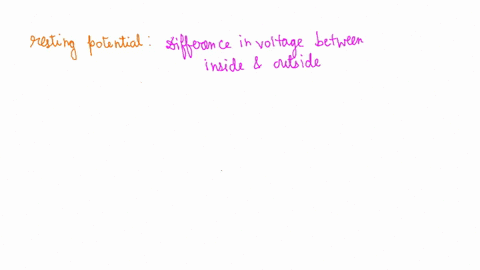 resting potential: Difference in voltage between
inside & outside